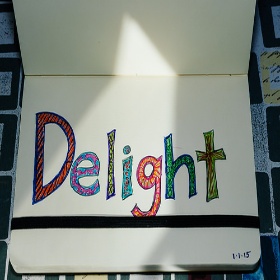 Delight
1·1·15